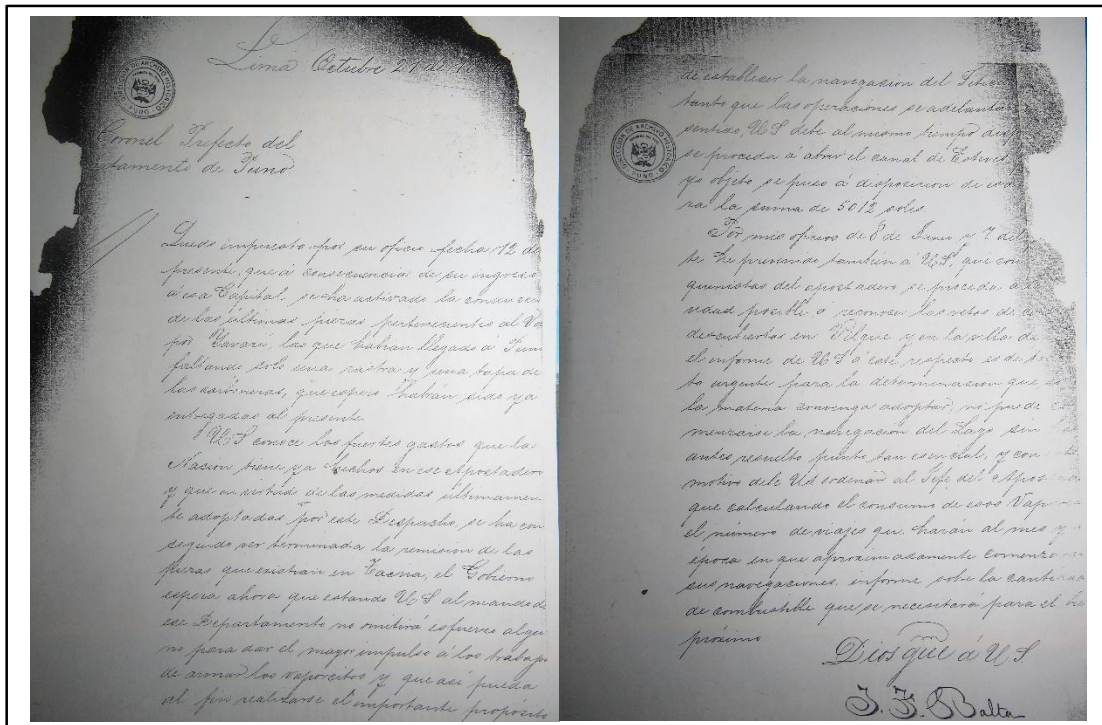 Lima Octubre 21 de 18
DIRECCION DE ARCHIVO HISTORICO
PUNO
Coronel Prefecto del
rtamento de Puno
Quedo impuesto por su oficio fecha 12 del
presente, que á consecuencia de su ingreso
á esa Capital, se ha activado la conducción
de las últimas piezas pertenecientes al Va
por Yavari, las que habran llegado á Pun
faltando solo una rastra y una tapa de
las carboneras, que espero habrán sido ya
entregadas al presente.
US conoce los fuertes gastos que la
Nacion tiene ya hechos en ese Apostadero
y que en virtud de las medidas últimamen
te adoptadas por este Despacho, se ha con
seguido ver terminada la remision de las
piezas que existian en Tacna, el Gobierno
espera ahora que estando US al mando de
ese Departamento no omitirá esfuerzo algu
no para dar el mayor impulso á los trabajos
de armar los vaporcitos y que asi pueda
al fin realizarse el importante propósito
de establecer la navegacion del Titic
tanto que las operaciones se adelanta
sentido, US debe al mismo tiempo disp
se proceda á abrir el canal de Esteves
yo objeto se puso á disposicion de
ra la suma de 5012 soles.
DIRECCION DE ARCHIVO HISTORICO
PUNO
Por mis oficios de 8 de Junio y 7 del
te he prevenido tambien á US, que con
quinistas del apostadero se proceda á
vedad posible á reconocer las vetas de
descubiertas en Vilque y en la villa de
el informe de US á este respecto es de
to urgente para la determinacion que
la materia convenga adoptar, no puede co
menzarse la navegacion del Lago sin
antes resuelto punto tan esencial, y con
motivo debe US ordenar al Jefe del Apos
que calculando el consumo de esos Vapor
el número de viajes que harán al mes y
época en que aproximadamente comenza
sus navegaciones, informe sobre la cantidad
de combustible que se necesitará para el
próximo
Dios gue á US.
J. F. Balta